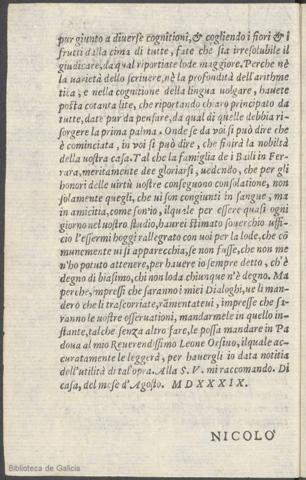 pur giunto a diuerse cognitioni, & cogliendo i fiori & i
frutti dalla cima di tutte, fate che sia irresolubile il
giudicare, da qual riportiate lode maggiore. Perche nè
la uarietà dello scriuere, nè la profondità dell'arithme
tica, e nella cognitione della lingua uolgare, hauete
posta cotanta lite, che riportando chiaro principato da
tutte, date pur da pensare, da qual di quelle debbia ri-
sorgere la prima palma. Onde se da voi si può dire che
è cominciata, in voi si può dire, che finirà la nobiltà
della uostra casa. Tal che la famiglia de i Baili in Fer-
rara, meritamente dee gloriarsi, uedendo, che per gli
honori delle uirtù uostre conseguono consolatione, non
solamente quegli, che ui son congiunti in sangue, ma
in amicitia, come son'io, ilquale per essere quasi ogni
giorno nel uostro studio, haurei stimato souerchio uffi-
cio l'essermi hoggi rallegrato con uoi per la lode, che cō
munemente ui si apparecchia, se non fusse, che non me
n'ho potuto attenere, per hauere io sempre detto, ch'è
degno di biasimo, chi non loda chiunque n'è degno. Ma
perche, impressi che saranno i miei Dialoghi, ue li man-
derò che li trascorriate, rāmentateui, impresse che sa-
ranno le uostre osseruationi, mandarmele in quello in-
stante, talche senza altro fare, le possa mandare in Pa
doua al mio Reuerendissimo Leone Orsino, ilquale ac-
curatamente le leggerà, per hauergli io data notitia
dell'utilità di tal'opra. Alla S. V. mi raccomando. Di
casa, del mese d'Agosto. MDXXXIX.
NICOLO'
Biblioteca de Galicia